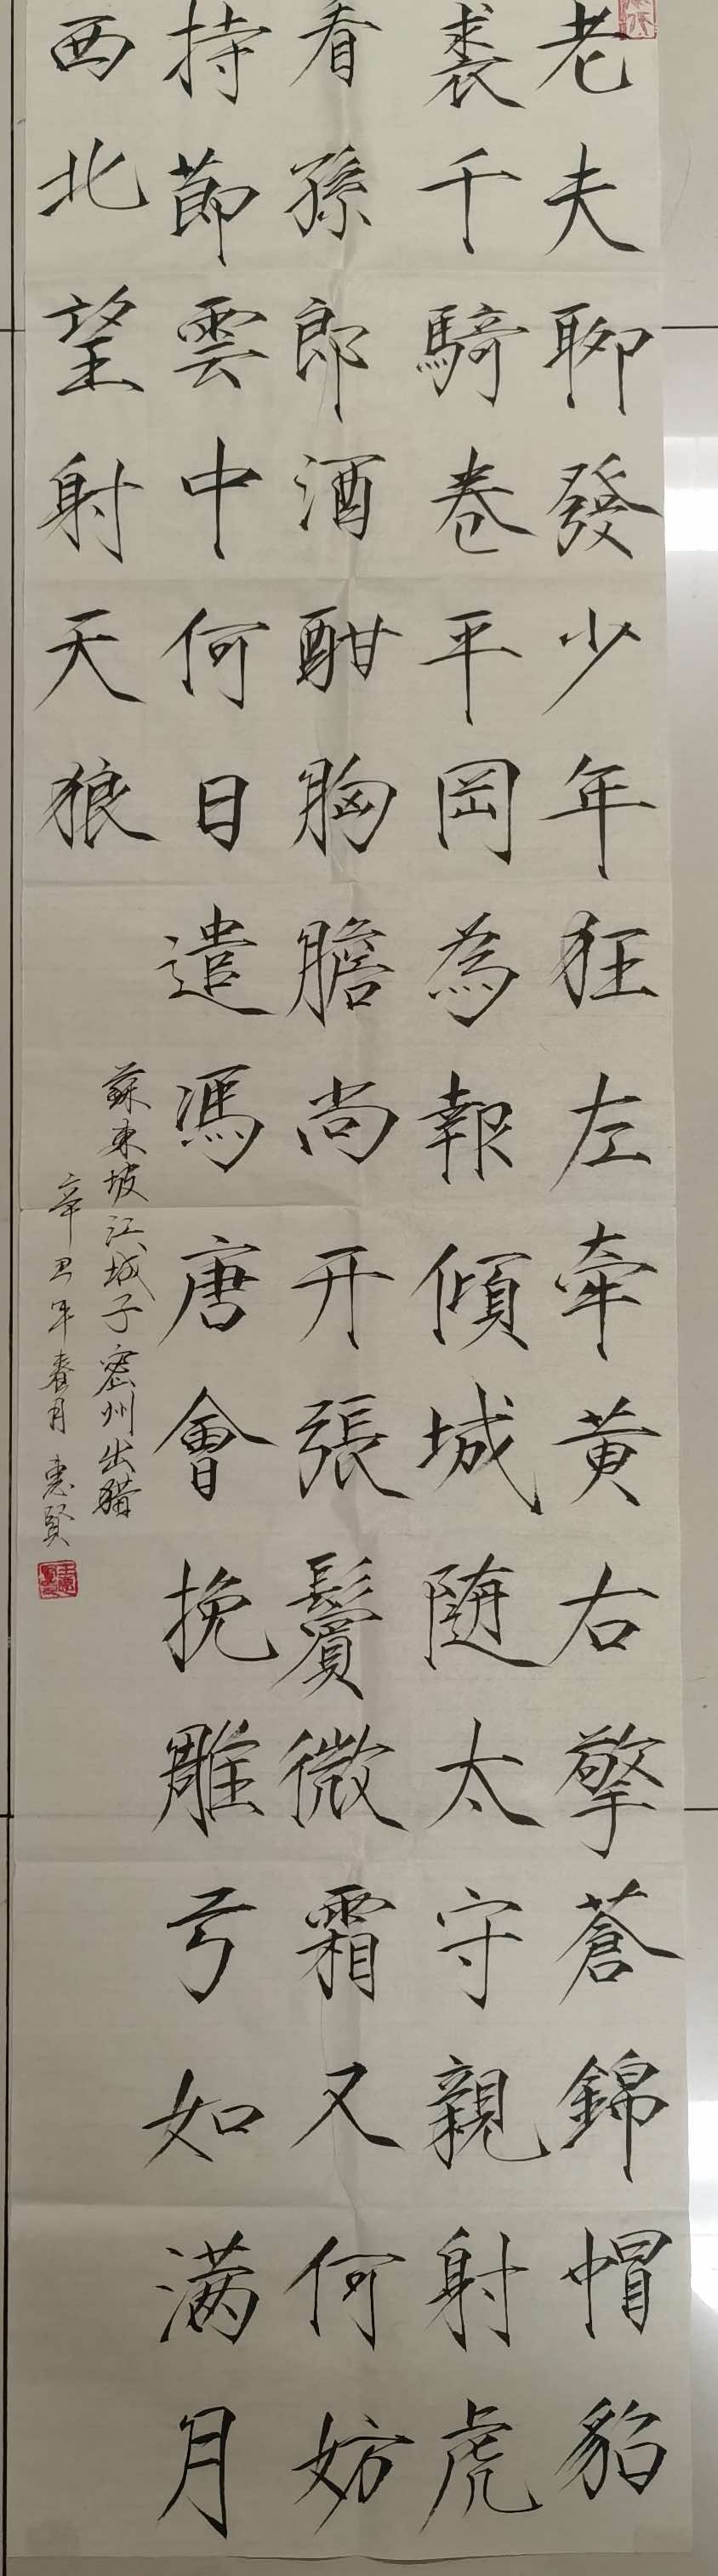 老夫聊發少年狂左牽黄右擎蒼錦帽貂
裘千騎卷平岡為報傾城随太守親射虎
看孫郎酒酣胸膽尚开張鬢微霜又何妨
持節雲中何日遣馮唐會挽雕弓如满月
西北望射天狼
蘇東坡江城子密州出猎
辛丑年春月惠賢